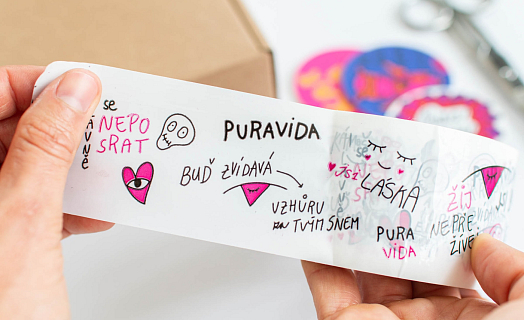 se
NEPO
SRAT
PURAVIDA
BUĎ ZVÍDAVÁ
VZHŮRU
za TVÝM SNEM
JSI
LÁSKA
PURA
VIDA
ŽIJ
NEPŘE